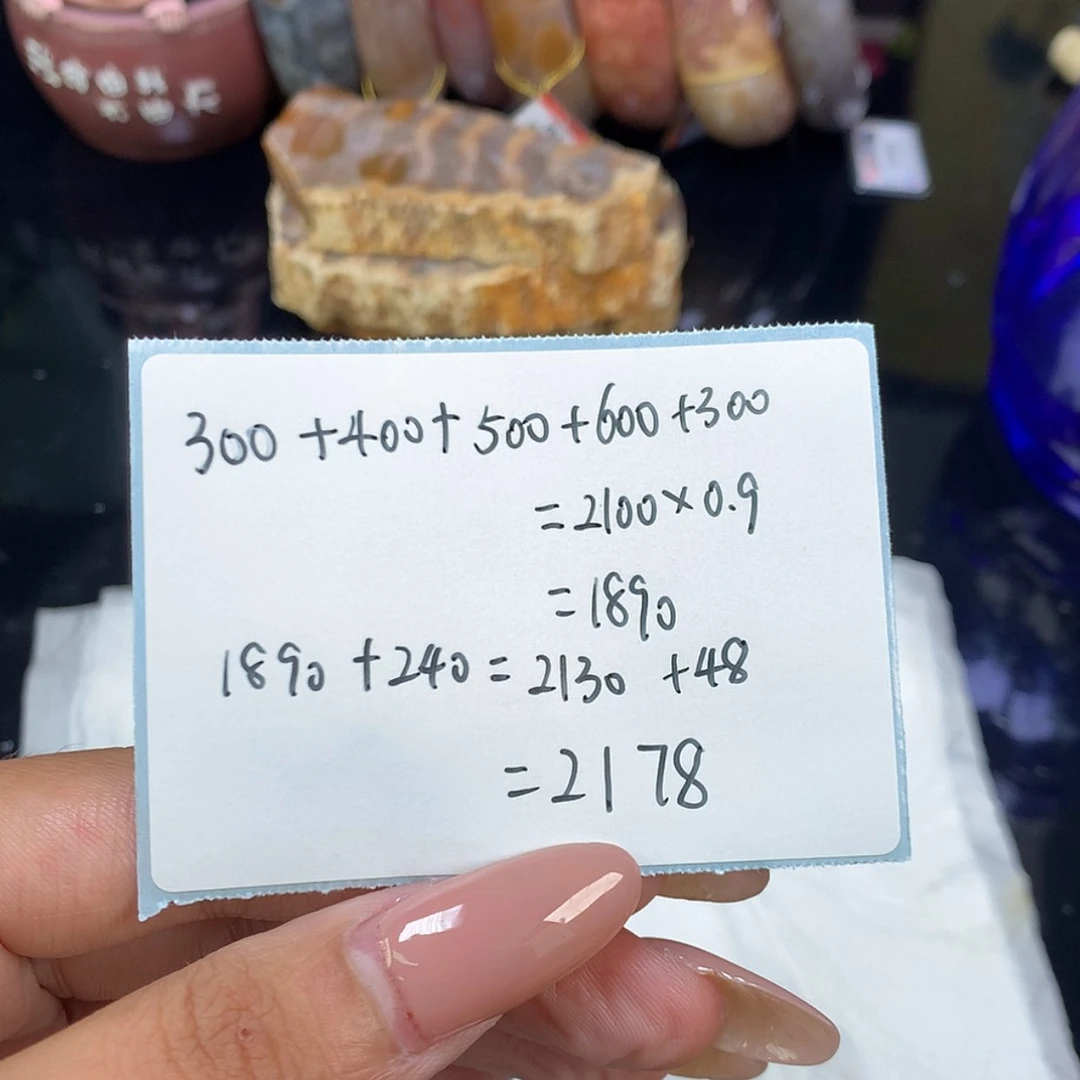 300+400+500+600+300
=2100×0.9
=1890
1890+240=2130+48
=2178